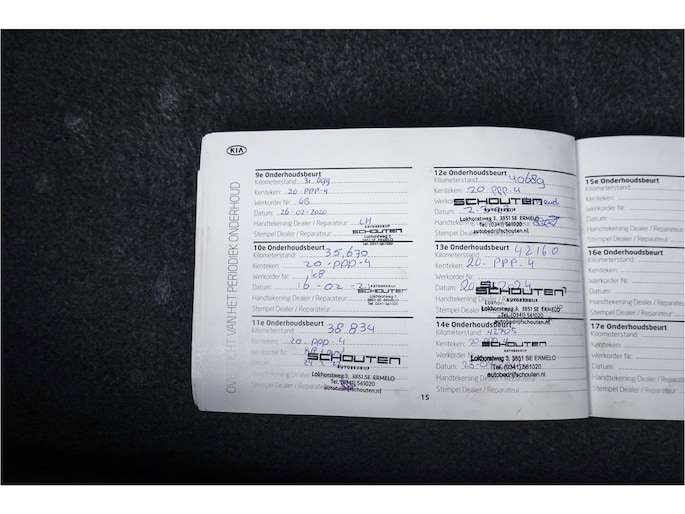 KIA
OVERZICHT VAN HET PERIODIEK ONDERHOUD
9e Onderhoudsbeurt
Kilometerstand: 31.699
Kenteken: 20-PPP-4
Werkorder Nr.:
Datum: 26-02-2020
Handtekening Dealer / Reparateur: LH
Stempel Dealer / Reparateur: SCHOUTEN
10e Onderhoudsbeurt
Kilometerstand: 35,670
Kenteken: 20-PPP-4
Werkorder Nr: KB
Datum: 16-02-2
Handtekening Dealer / Reparateur
Stempel Dealer / Reparateur
SCHOUTEN
11e Onderhoudsbeurt
Kilometerstand: 38.834
Kenteken: 20.PPP.4
Werkorder Nr:
Datum:
Handtekening Dealer
Stempel Dealer / Reparateur
SCHOUTEN
AUTOBEDRIJF
Lokhorstweg 3, 3851 SE ERMELO
Tel. (0341) 561020
autobedrijfschouten.nl
12e Onderhoudsbeurt
Kilometerstand: 40689
Kenteken: 20-PPP-4
Datum:
Handtekening
Stempel Dealer
SCHOUTEN
AUTOBEDRIJF
Lokhorstweg 3, 3851 SE ERMELO
Tel. (0341) 561020
autobedrijfschouten.nl
13e Onderhoudsbeurt
Kilometerstand: 42160
Kenteken: 20-PPP-4
Datum:
Handtekening
Stempel Dealer
SCHOUTEN
AUTOBEDRIJF
Lokhorstweg 3, 3851 SE ERMELO
Tel. (0341) 561020
autobedrijfschouten.nl
14e Onderhoudsbeurt
Kilometerstand:
Kenteken:
Werkorder Nr:
Datum:
Handtekening
Stempel Dealer / Reparateur
SCHOUTEN
AUTOBEDRIJF
Lokhorstweg 3, 3851 SE ERMELO
Tel. (0341) 561020
autobedrijfschouten.nl
15
15e Onderhoudsbeurt
Kilometerstand:
Kenteken:
Werkorder Nr:
Datum:
Handtekening Dealer / Re
Stempel Dealer / Reparat
16e Onderhoudsbeurt
Kilometerstand:
Kenteken:
Werkorder Nr:
Datum:
Handtekening Dealer / Re
Stempel Dealer / Reparat
17e Onderhoudsbeurt
Kilometerstand:
Kenteken:
Werkorder Nr:
Datum:
Handtekening Dealer / R
Stempel Dealer / Repara